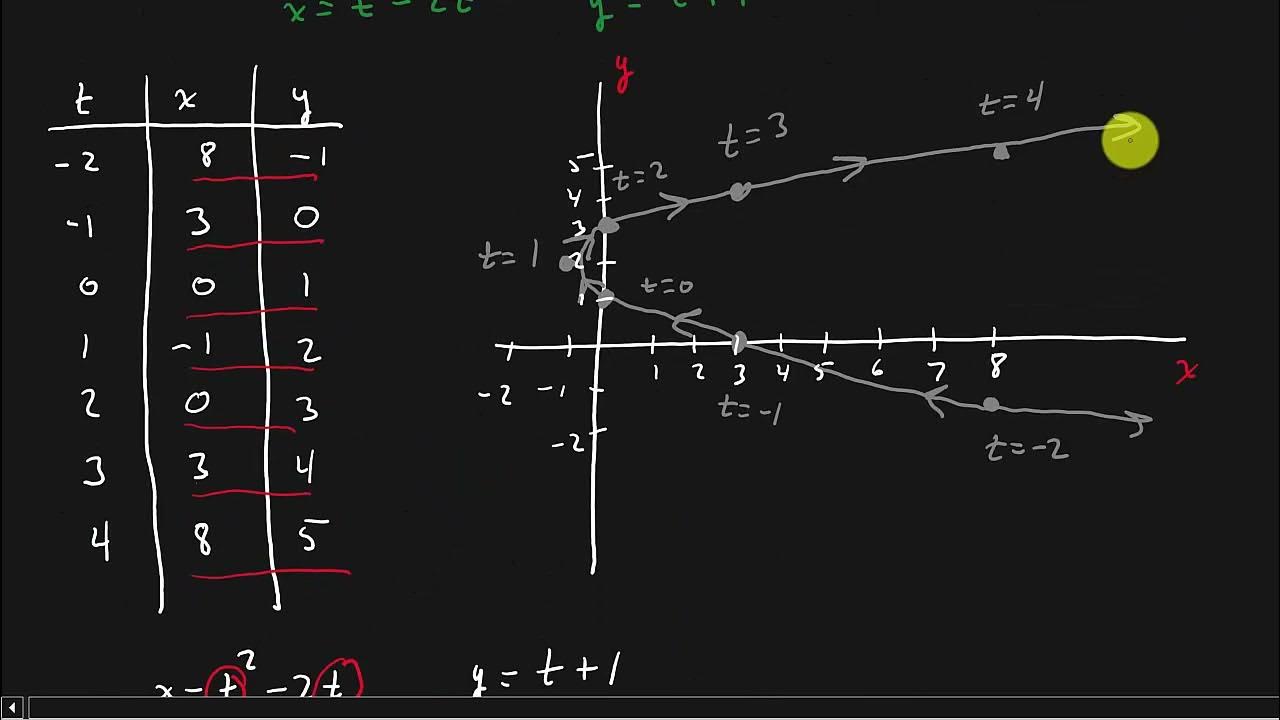 x = t - 2t y = t + 1
t x y
-2 8 -1
-1 3 0
0 0 1
1 -1 2
2 0 3
3 3 4
4 8 5
y
t=4
t=3
5
t=2
4
3
t=1
2
t=0
1
-2 -1 1 2 3 4 5 6 7 8 x
t=-1
-2
t=-2
x = t² - 2t y = t + 1